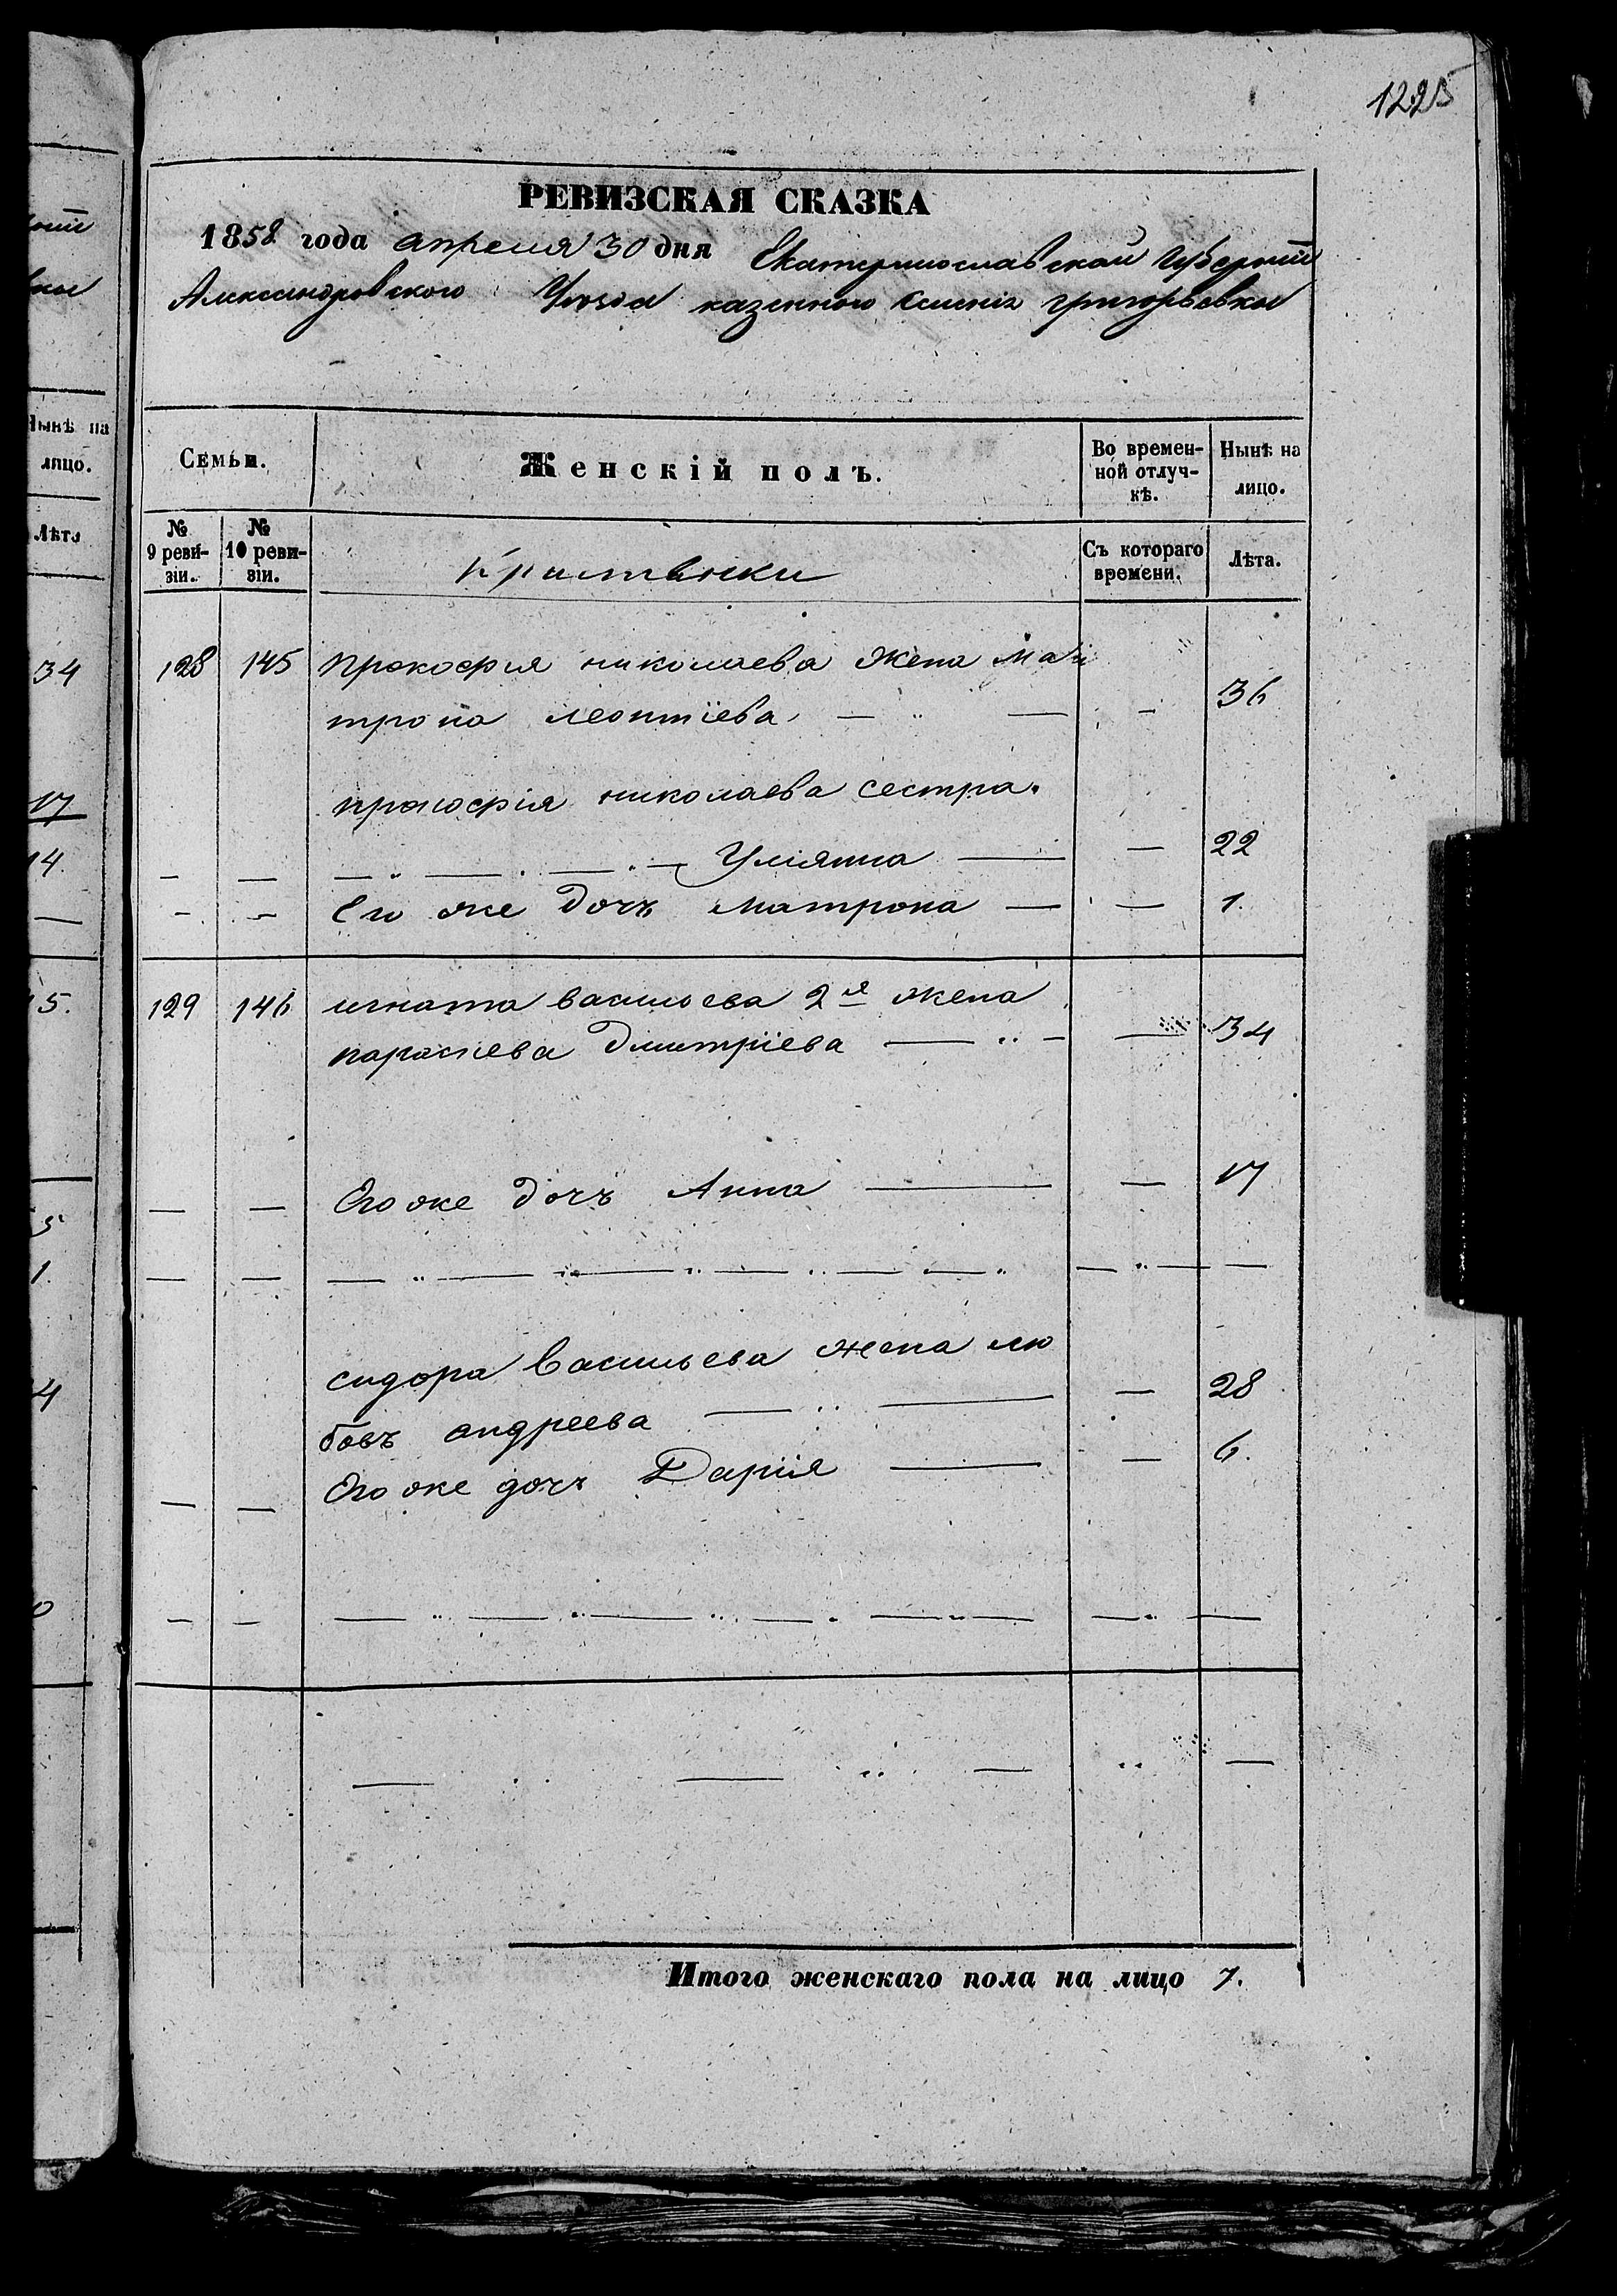 1225
РЕВИЗСКАЯ СКАЗКА
1858 года апреля 30 дня Екатеринославской Губерніи
Александровского Уѣзда казенного селенія григорьевки
Семьи.
Женскій полъ.
Во времен-
ной отлуч-
кѣ.
Нынѣ на
лицо.
№
9 реви-
зіи.
№
10 реви-
зіи.
Крестьянки
Съ котораго
времени.
Лѣта.
128 145 прокофия николаева жена Ма
трона леонтіева — — — 36
прокофія николаева сестра.
— — — — — Улияина — — 22
— — Его же дочъ матрона — — 1.
129 146 игната васильева 2я жена
параскева дмитріева — — — 34
— — Его же дочъ Анна — — 17
сидора васильева жена лю
бовъ андреева — — — 28
— — Его же дочъ Дарія — — 6.
Итого женскаго пола на лицо 7.
Нынѣ на
лицо.
Лѣта
34
17
14.
—
15.
5
1.
4
0